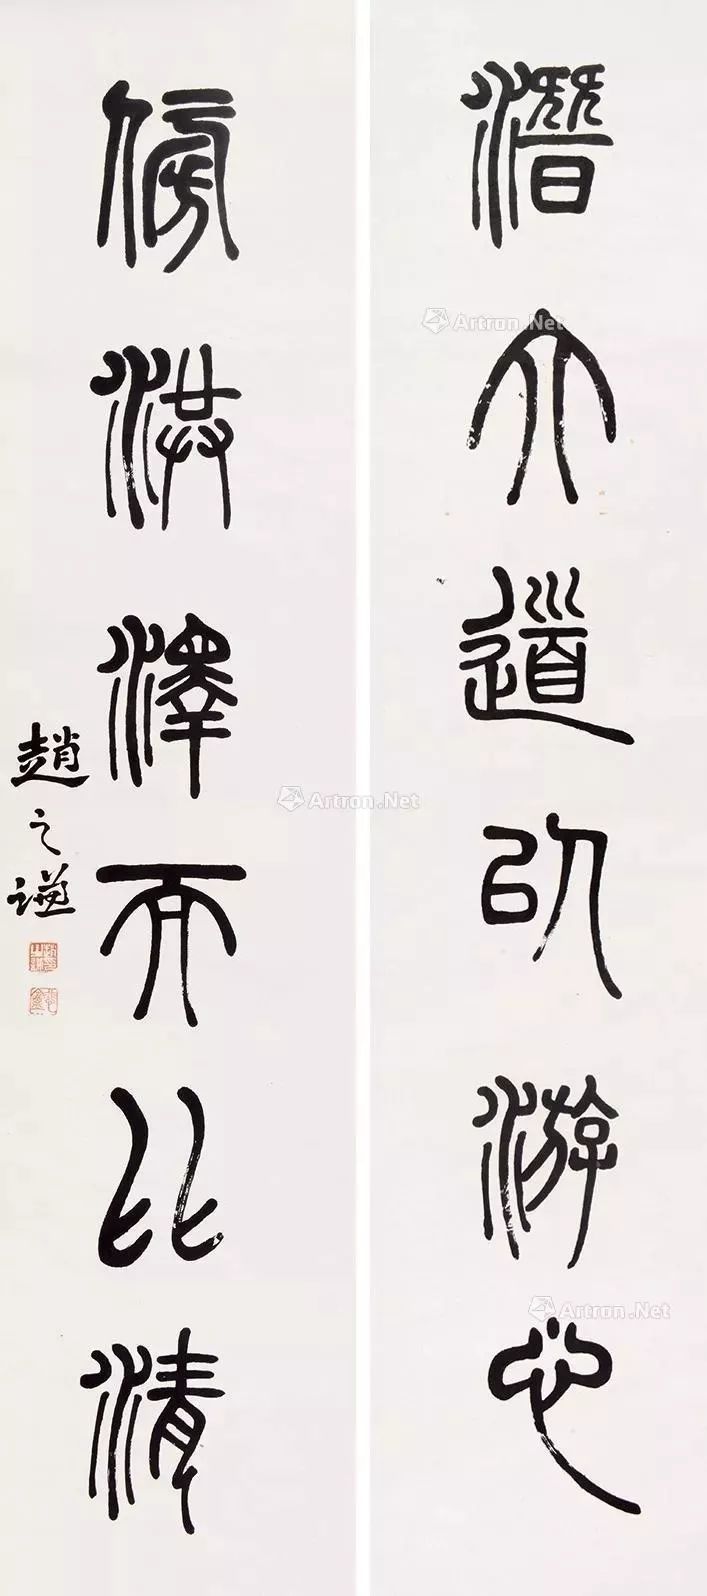 潛大道以游心
傍洪澤而比清
趙之謙
Artron.Net
Artron.Net
Artron.Net